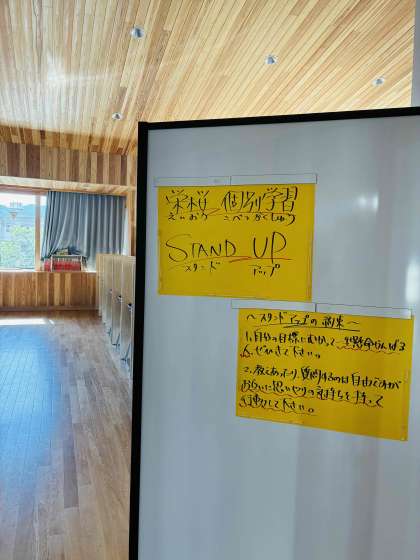 栄桜 個別学習
えいおう こべつがくしゅう
STAND UP
スタンド アップ
〜スタンドアップの約束〜
1. 自分の目標にむかって一生懸命がんばる
人、ぜひきて下さい。
2. 教えあったり、質問するのは自由ですが
お互いに思いやりの気持ちを持って
行動して下さい。